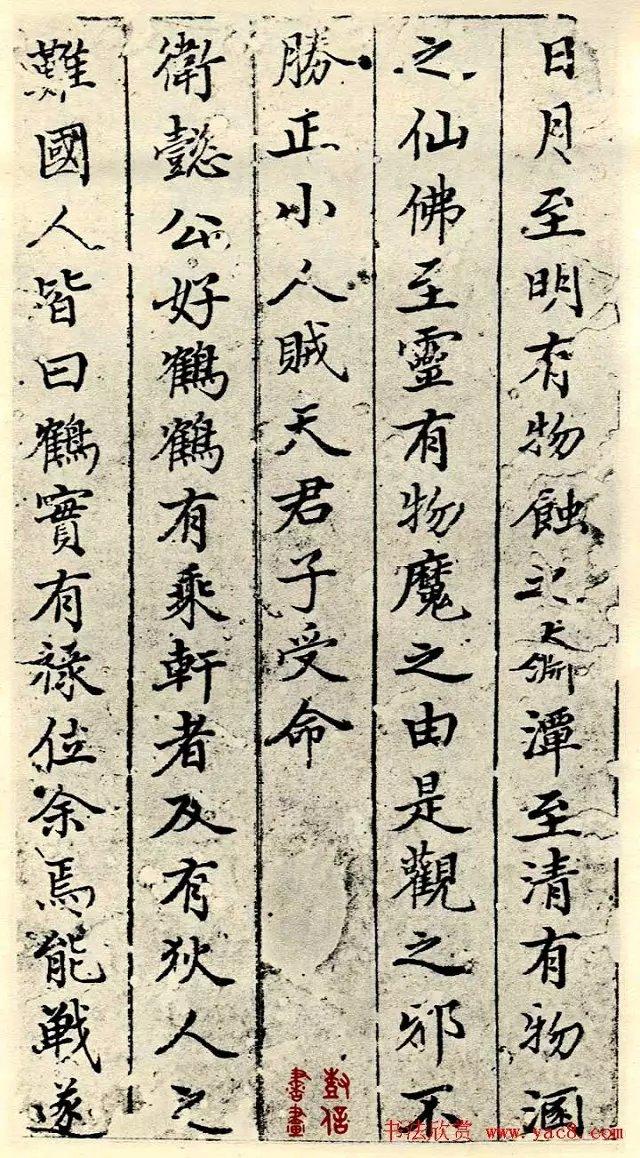 日月至明有物蝕之大淵潭至清有物溷
之仙佛至靈有物魔之由是觀之邪不
勝正小人賊天君子受命
衛懿公好鶴鶴有乘軒者及有狄人之
難國人皆曰鶴實有祿位余焉能戰遂
书法欣赏 www.yac8.com